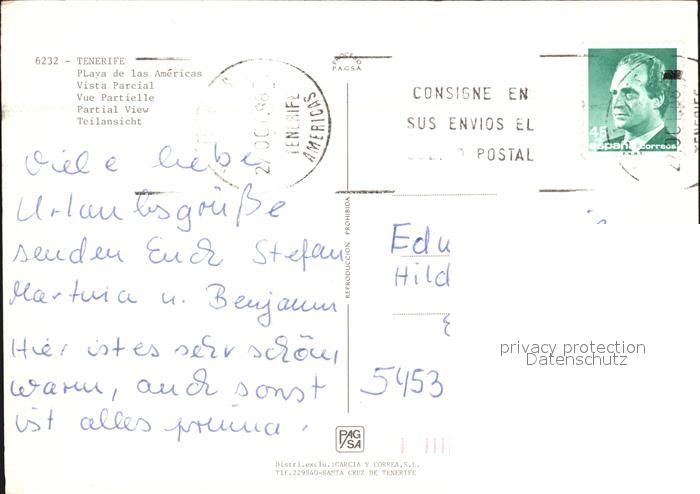 6232 - TENERIFE
PLaya de las Américas
Vista Parcial
Vue Partielle
Partial View
Teilansicht
P.A.G.S.A.
TENERIFE
AMERICAS
CONSIGNE EN
SUS ENVIOS EL
POSTAL
45
españa correos
Viele liebe
Urlaubsgrüße
senden Euch Stefan
Martina u. Benjamin
Hier ist es sehr schön
warm, auch sonst
ist alles prima.
REPRODUCCION PROHIBIDA
Edu
Hild
5453
privacy protection
Datenschutz
PAG
SA
Distri.exclu.:GARCIA Y CORREA,S.L.
Tlf.229840-SANTA CRUZ DE TENERIFE